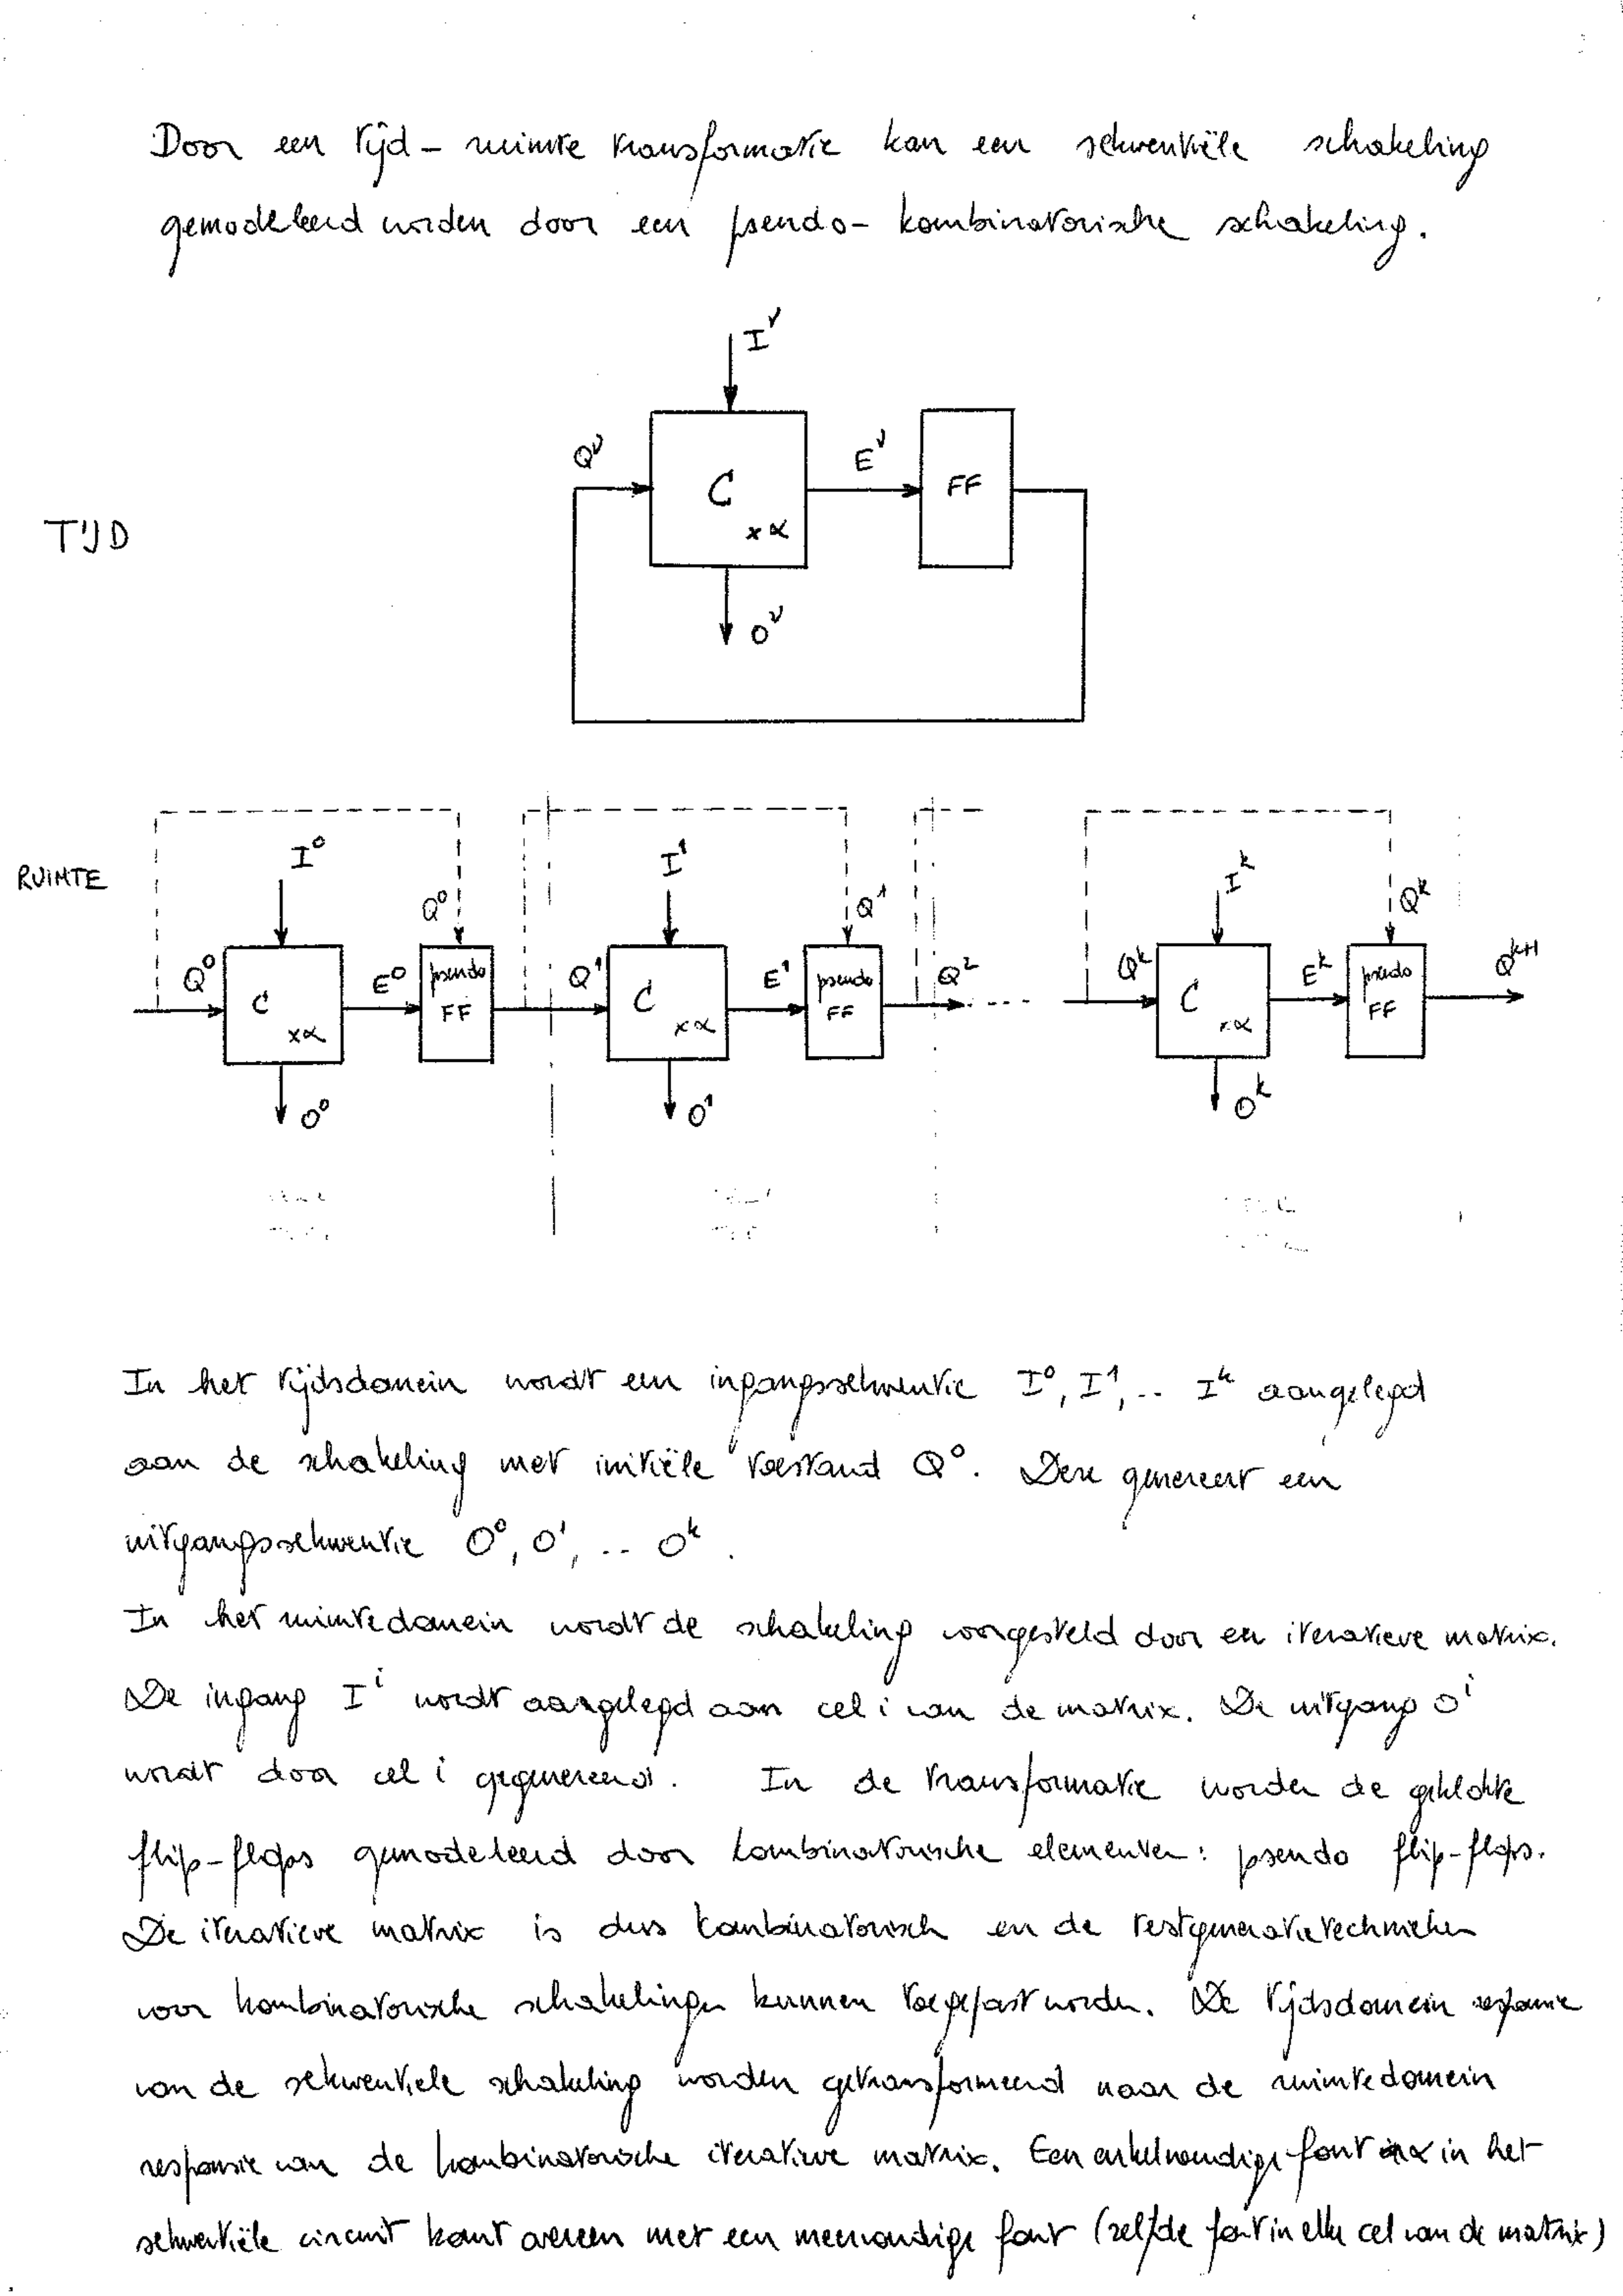 Door een tijd - ruimte transformatie kan een sekwentiële schakeling
gemodeleerd worden door een pseudo- kombinatorische schakeling.
I^ν
Q^ν
C
E^ν
FF
x α
TIJD
O^ν
RUIMTE
I^0 I^1 I^k
Q^0 Q^1 Q^k
Q^0 C E^0 pseudo FF Q^1 C E^1 pseudo FF Q^2 .... Q^k C E^k pseudo FF Q^k+1
xα xα xα
O^0 O^1 O^k
In het tijdsdomein wordt een ingangssekwentie I^0, I^1, .. I^k aangelegd
aan de schakeling met initiële toestand Q^0. Deze genereert een
uitgangssekwentie O^0, O^1, .. O^k.
In het ruimtedomein wordt de schakeling voorgesteld door en iteratieve matrix.
De ingang I^i wordt aangelegd aan cel i van de matrix. De uitgang O^i
wordt door cel i gegenereerd. In de transformatie worden de geklokte
flip-flops gemodeleerd door kombinatorische elementen: pseudo flip-flops.
De iteratieve matrix is dus kombinatorisch en de testgeneratietechnieken
voor kombinatorische schakelingen kunnen toegepast worden. De tijdsdomein responsie
van de sekwentiele schakeling worden getransformeerd naar de ruimtedomein
responsie van de kombinatorische iteratieve matrix. Een enkelvoudige fout α in het
sekwentiële circuit komt overeen met een meervoudige fout (zelfde fout in elke cel van de matrix)